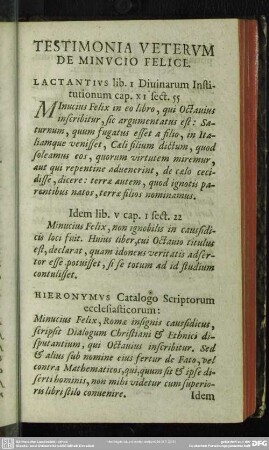 TESTIMONIA VETERVM
DE MINVCIO FELICE.
LACTANTIVS lib. I Diuinarum Insti-
tutionum cap. XI sect. 55
Minucius Felix in eo libro, qui Octauius
inscribitur, sic argumentatus est: Sa-
turnum, quum fugatus esset a filio, in Ita-
liamque venisset, Cæli filium dictum, quod
soleamus eos, quorum virtutem miremur,
aut qui repentine aduenerint, de cælo ceci-
disse, dicere: terræ autem, quod ignotis pa-
rentibus natos, terræ filios nominamus.
Idem lib. V cap. I sect. 22
Minucius Felix, non ignobilis in causidi-
cis loci fuit. Huius liber, cui Octauio titulus
est, declarat, quam idoneus veritatis adser-
tor esse potuisset, si se totum ad id studium
contulisset.
HIERONYMVS Catalogo Scriptorum
ecclesiasticorum:
Minucius Felix, Romæ insignis causidicus,
scripsit Dialogum Christiani & Ethnici di-
sputantium, qui Octauius inscribitur. Sed
& alius sub nomine eius fertur de Fato, vel
contra Mathematicos, qui, quum sit & ipse di-
serti hominis, non mihi videtur cum superio-
ris libri stilo conuenire.
Idem
DFG